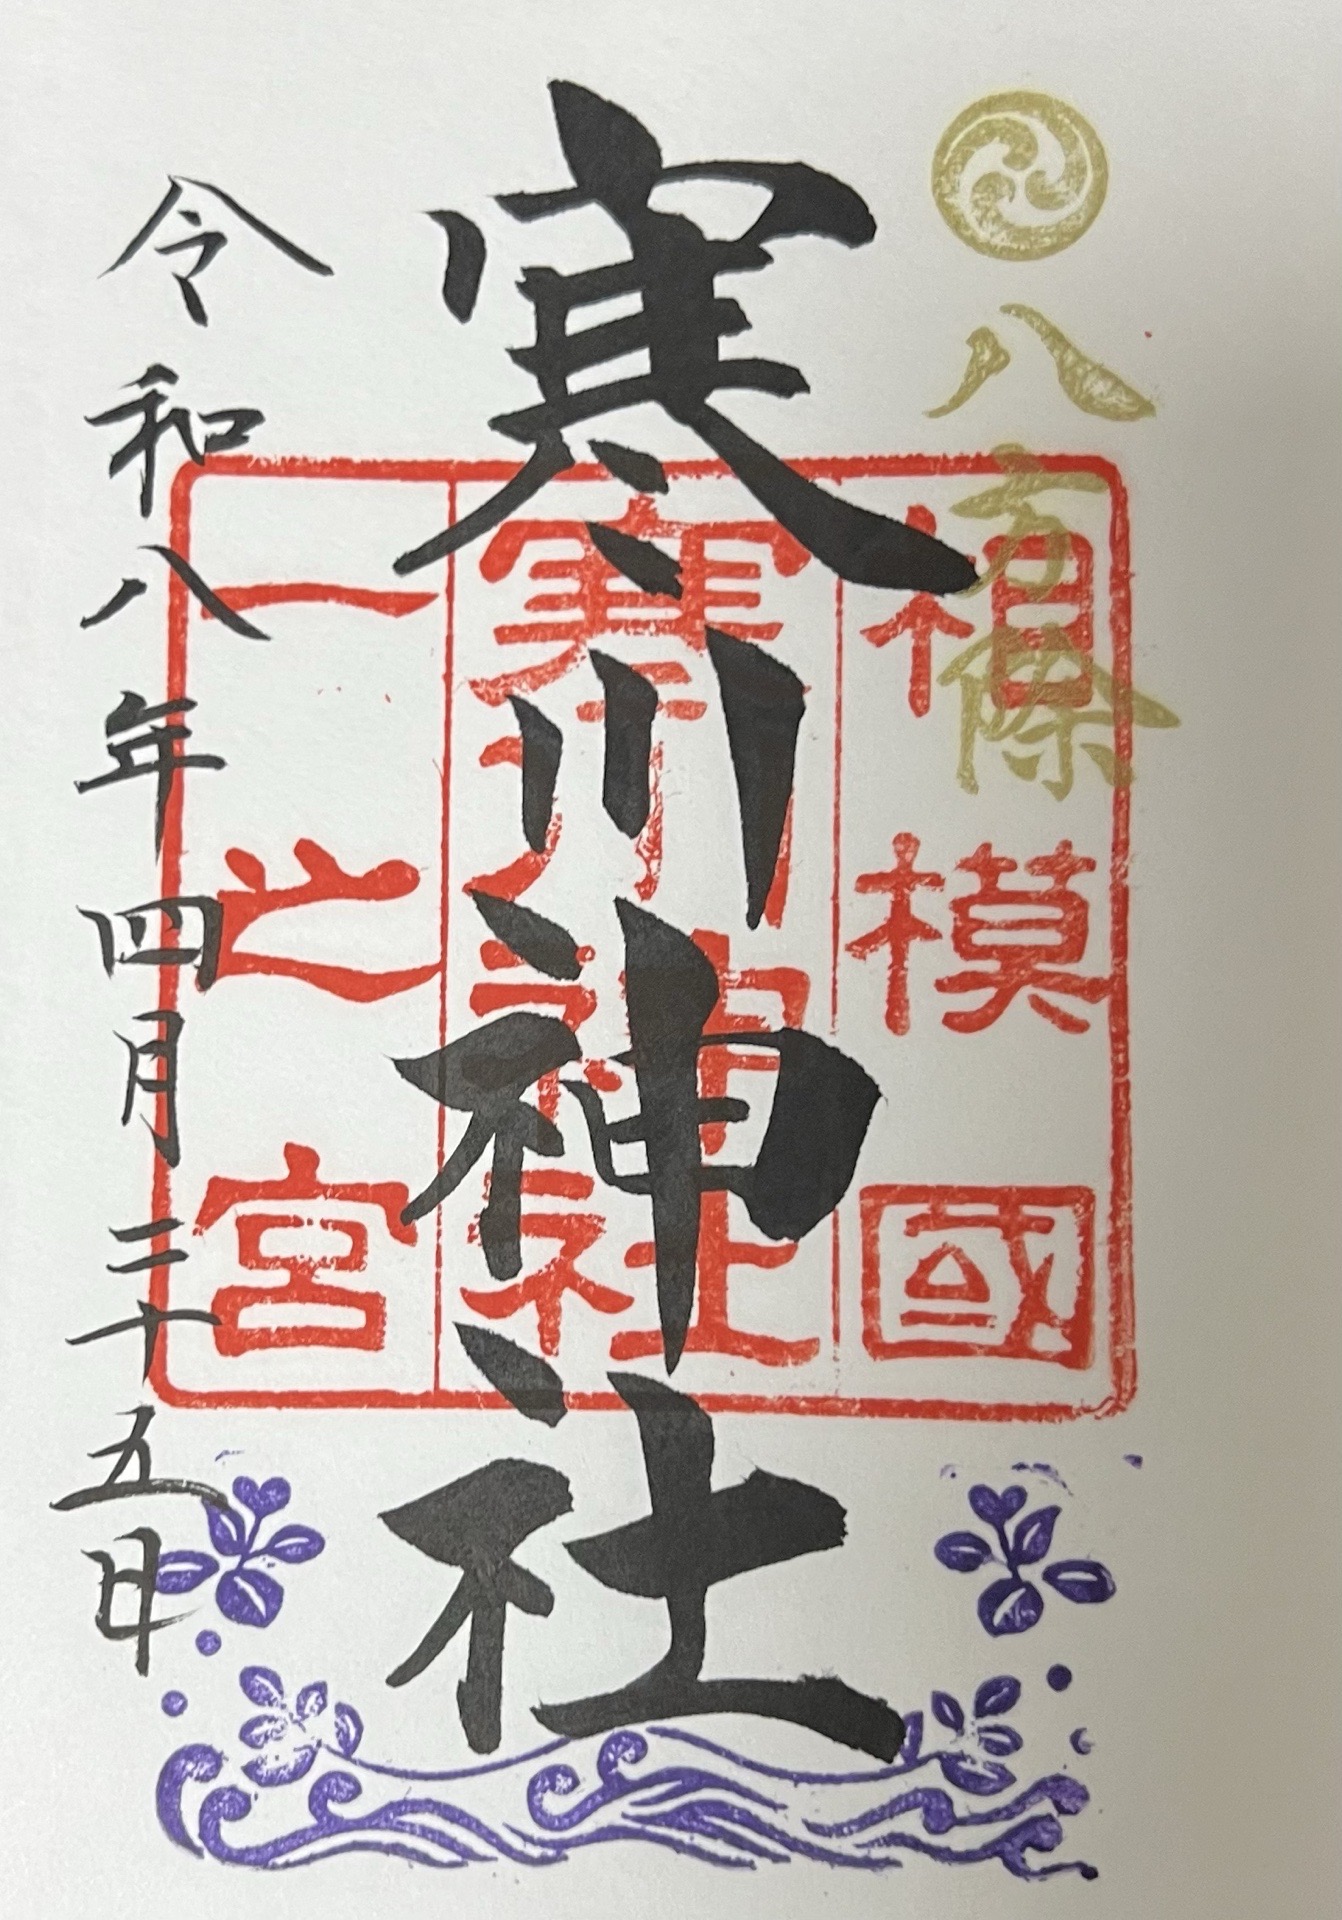 八方除
相模國
寒川神社
一之宮
寒川神社
令和八年四月二十五日